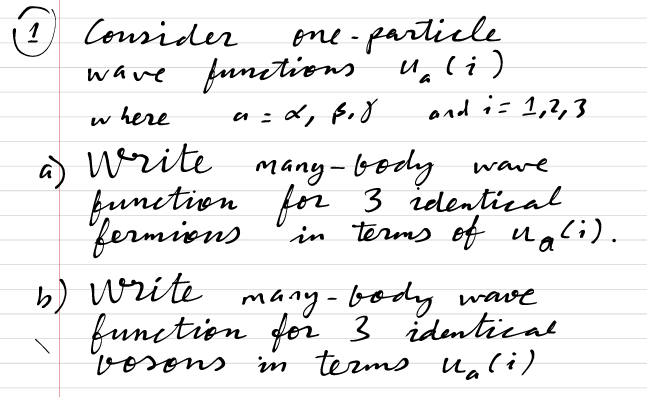 1 Consider one-particle
wave functions u_a(i)
where a = α, β, γ and i = 1,2,3
a) Write many-body wave
function for 3 identical
fermions in terms of u_a(i).
b) Write many-body wave
function for 3 identical
bosons in terms u_a(i)